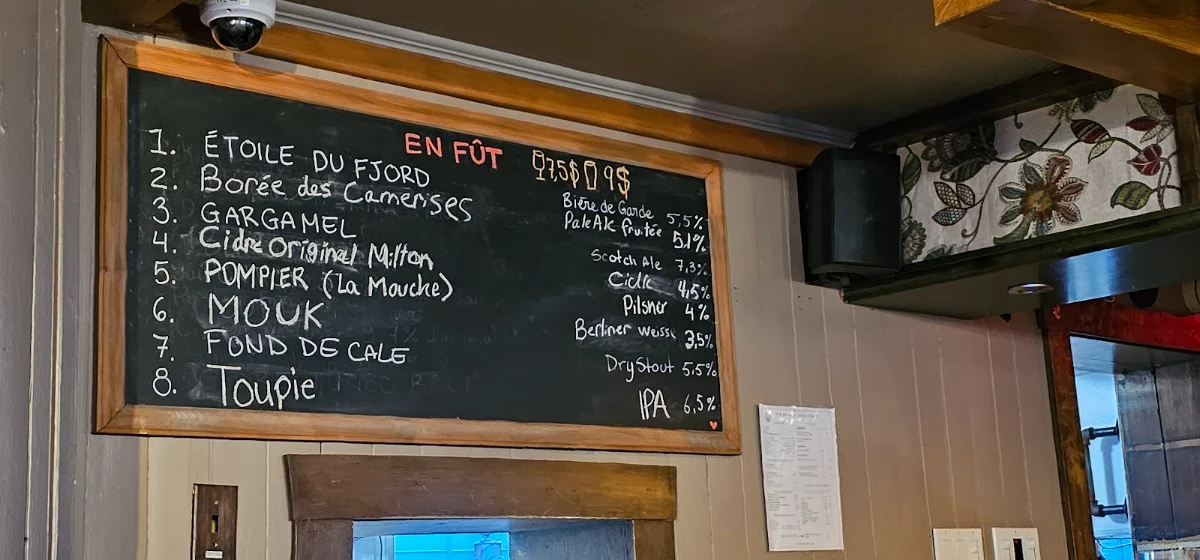 EN FÛT 7,5$ 9$
1. ÉTOILE DU FJORD Bière de Garde 5,5%
2. Borée des Camerises Pale Ale fruitée 5,1%
3. GARGAMEL Scotch Ale 7,3%
4. Cidre Original Milton Cidre 4,5%
5. POMPIER (La Mouche) Pilsner 4%
6. MOUK Berliner weisse 3,5%
7. FOND DE CALE Dry Stout 5.5%
8. Toupie IPA 6,5%